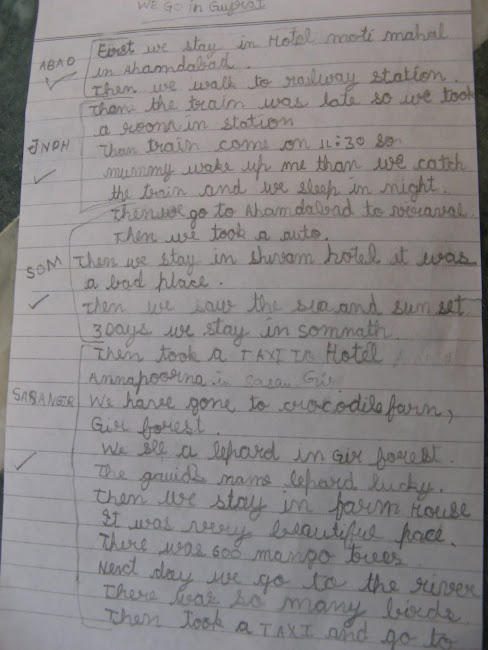 WE GO in Gujrat
ABAD
First we stay in Hotel moti mahal
in Ahamdabad.
Then we walk to railway station.
Then the train was late so we took
a room in station
JNDH
Than train come on 11:30 so
mummy wake up me than we catch
the train and we sleep in night.
Then we go to Ahamdabad to veraval.
Then we took a auto.
SOM
Then we stay in shivam hotel it was
a bad place.
Then we saw the sea and sun set
3 Days we stay in somnath.
Then took a TAXI TO Hotel
Annapoorna in Sasan Gir
SASANGER
We have gone to crocodile farm,
Gir forest.
We see a lepard in Gir forest.
The gauids name lepard lucky.
Then we stay in farm House
It was very beautiful pace.
There was 600 mango trees
Next day we go to the river
There was so many birds
Then took a TAXI and go to